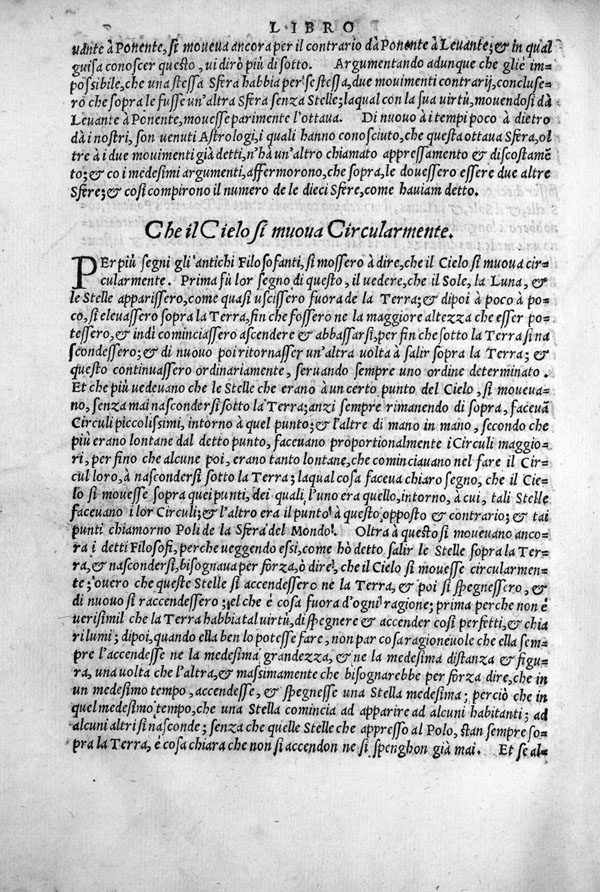 LIBRO
uante à Ponente, si moueua ancora per il contrario dà Ponente à Leuante; & in qual
guisa conoscer questo, ui dirò più di sotto. Argumentando adunque che gl'ie im-
possibile, che una stessa Sfera habbia per se stessa, due mouimenti contrarij, concluse-
ro che sopra le fusse un'altra Sfera senza Stelle; laqual con la sua uirtù, mouendosi dà
Leuante à Ponente, mouesse parimente l'ottaua. Di nuouo à i tempi poco à dietro
dà i nostri, son uenuti Astrologi, i quali hanno conosciuto, che questa ottaua Sfera, ol
tre à i due mouimenti già detti, n'hà un'altro chiamato appressamento & discostamē
to; & co i medesimi argumenti, affermorono, che sopra, le douessero essere due altre
Sfere; & così compirono il numero de le dieci Sfere, come hauiam detto.
Che il Cielo si muoua Circularmente.
PEr più segni gli antichi Filosofanti, si mossero à dire, che il Cielo si muoua cir-
cularmente. Prima fù lor segno di questo, il uedere, che il Sole, la Luna, &
le Stelle apparissero, come quasi uscissero fuora de la Terra; & dipoi à poco à po-
co, si eleuassero sopra la Terra, fin che fossero ne la maggiore altezza che esser po-
tessero, & indi cominciassero ascendere & abbassarsi, per fin che sotto la Terra si na
scondessero; & di nuouo poi ritornasser un'altra uolta à salir sopra la Terra; &
questo continuassero ordinariamente, seruando sempre uno ordine determinato.
Et che più uedeuano che le Stelle che erano à un certo punto del Cielo, si moueua-
no, senza mai nascondersi sotto la Terra; anzi sempre rimanendo di sopra, faceuā
Circuli piccolissimi, intorno à quel punto; & l'altre di mano in mano, secondo che
più erano lontane dal detto punto, faceuano proportionalmente i Circuli maggio-
ri, per fino che alcune poi, erano tanto lontane, che cominciauano nel fare il Cir-
cul loro, à nascondersi sotto la Terra; laqual cosa faceua chiaro segno, che il Cie-
lo si mouesse sopra quei punti, dei quali l'uno era quello, intorno, à cui, tali Stelle
faceuano i lor Circuli; & l'altro era il punto à questo opposto & contrario; & tai
punti chiamorno Poli de la Sfera del Mondo. Oltra à questo si moueuano anco-
ra i detti Filosofi, perche ueggendo essi, come hò detto salir le Stelle sopra la Ter-
ra, & nascondersi, bisognaua per forza, ò dire, che il Cielo si mouesse circularmen-
te; ouero che queste Stelle si accendessero ne la Terra, & poi si spegnessero, &
di nuouo si raccendessero; el che è cosa fuora d'ogni ragione; prima perche non è
uerisimil che la Terra habbia tal uirtù, di spegnere & accender così perfetti, & chia
ri lumi; dipoi, quando ella ben lo potesse fare, non par cosa ragioneuole che ella sem-
pre l'accendesse ne la medesima grandezza, & ne la medesima distanza & figu-
ra, una uolta che l'altra, & massimamente che bisognarebbe per forza dire, che in
un medesimo tempo, accendesse, & spegnesse una Stella medesima; perciò che in
quel medesimo tempo, che una Stella comincia ad apparire ad alcuni habitanti; ad
alcuni altri si nasconde; senza che quelle Stelle che appresso al Polo, stan sempre so-
pra la Terra, è cosa chiara che non si accendon ne si spenghon già mai. Et se al-